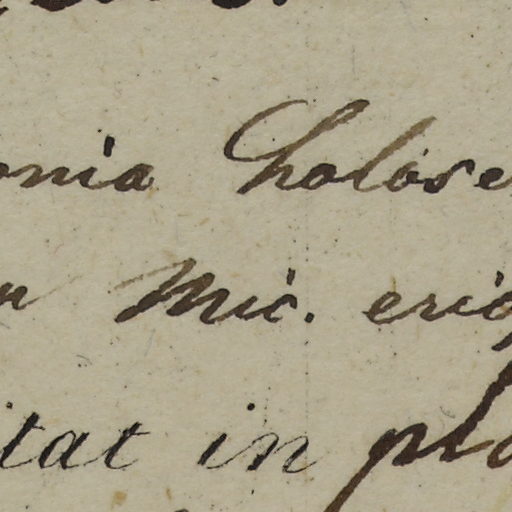 onia holose
Mic. eric
itat in pla